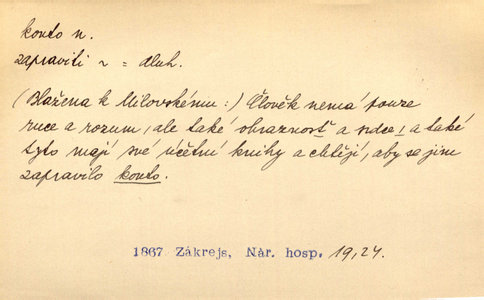 konto n.
zapraviti ~ = dluh.
(Blažena k Milovskému:) Člověk nemá pouze
ruce a rozum, ale také obraznost a srdce, a také
tyto mají své účetní knihy a chtějí, aby se jim
zapravilo konto.
1867 Zákrejs, Nár. hosp. 19,24.